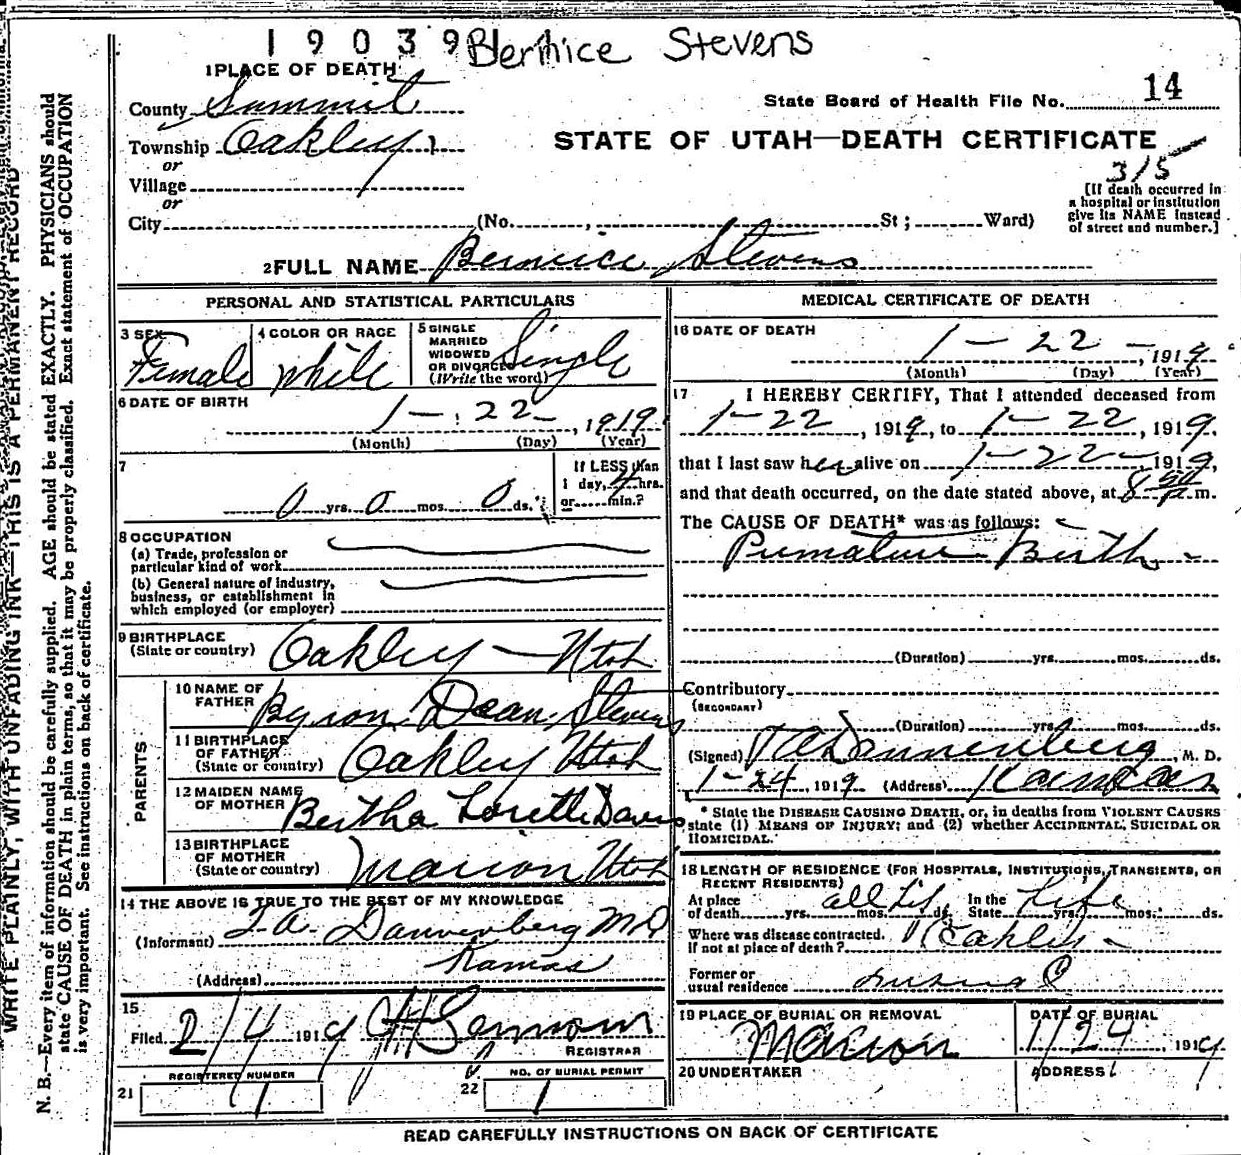 19039 Bernice Stevens
1 PLACE OF DEATH
County Summit
State Board of Health File No. 14
Township Oakley
STATE OF UTAH—DEATH CERTIFICATE
or
Village
315
[If death occurred in a hospital or institution give its NAME instead of street and number.]
or
City (No. , St ; Ward)
2 FULL NAME Berniece Stevens
PERSONAL AND STATISTICAL PARTICULARS
3 SEX Female
4 COLOR OR RACE White
5 SINGLE MARRIED WIDOWED OR DIVORCED (Write the word) Single
6 DATE OF BIRTH 1 - 22 - , 1919
(Month) (Day) (Year)
7 0 yrs. 0 mos. 0 ds.
If LESS than 1 day, 4 hrs. or min.?
8 OCCUPATION
(a) Trade, profession or particular kind of work
(b) General nature of industry, business, or establishment in which employed (or employer)
9 BIRTHPLACE (State or country) Oakley - Utah
PARENTS
10 NAME OF FATHER Byron Dean Stevens
11 BIRTHPLACE OF FATHER (State or country) Oakley Utah
12 MAIDEN NAME OF MOTHER Bertha Lorette Davis
13 BIRTHPLACE OF MOTHER (State or country) Marion Utah
14 THE ABOVE IS TRUE TO THE BEST OF MY KNOWLEDGE
(Informant) T. A. Dannenberg MD
(Address) Kamas
15
Filed 2/4 1919
REGISTRAR
21 REGISTERED NUMBER 1
22 NO. OF BURIAL PERMIT 1
MEDICAL CERTIFICATE OF DEATH
16 DATE OF DEATH 1 - 22 - , 1919
(Month) (Day) (Year)
17 I HEREBY CERTIFY, That I attended deceased from
1-22 , 1919, to 1-22 , 1919,
that I last saw her alive on 1-22- 1919,
and that death occurred, on the date stated above, at 8 50 P. m.
The CAUSE OF DEATH* was as follows:
Premature Birth -
(Duration) yrs. mos. ds.
Contributory (SECONDARY)
(Duration) yrs. mos. ds.
(Signed) T A Dannenberg M. D.
1-24 1919 (Address) Kamas
* State the DISEASE CAUSING DEATH, or, in deaths from VIOLENT CAUSES
state (1) MEANS OF INJURY; and (2) whether ACCIDENTAL, SUICIDAL OR
HOMICIDAL.
18 LENGTH OF RESIDENCE (FOR HOSPITALS, INSTITUTIONS, TRANSIENTS, OR
RECENT RESIDENTS)
At place of death yrs. all Life mos. ds. In the State Life yrs. mos. ds.
Where was disease contracted. If not at place of death? Oakley -
Former or usual residence
19 PLACE OF BURIAL OR REMOVAL Marion
DATE OF BURIAL 1/24 , 1919
20 UNDERTAKER
ADDRESS
READ CAREFULLY INSTRUCTIONS ON BACK OF CERTIFICATE
WRITE PLAINLY, WITH UNFADING INK—THIS IS A PERMANENT RECORD
N. B.—Every item of information should be carefully supplied. AGE should be stated EXACTLY. PHYSICIANS should
state CAUSE OF DEATH in plain terms, so that it may be properly classified. Exact statement of OCCUPATION
is very important. See instructions on back of certificate.